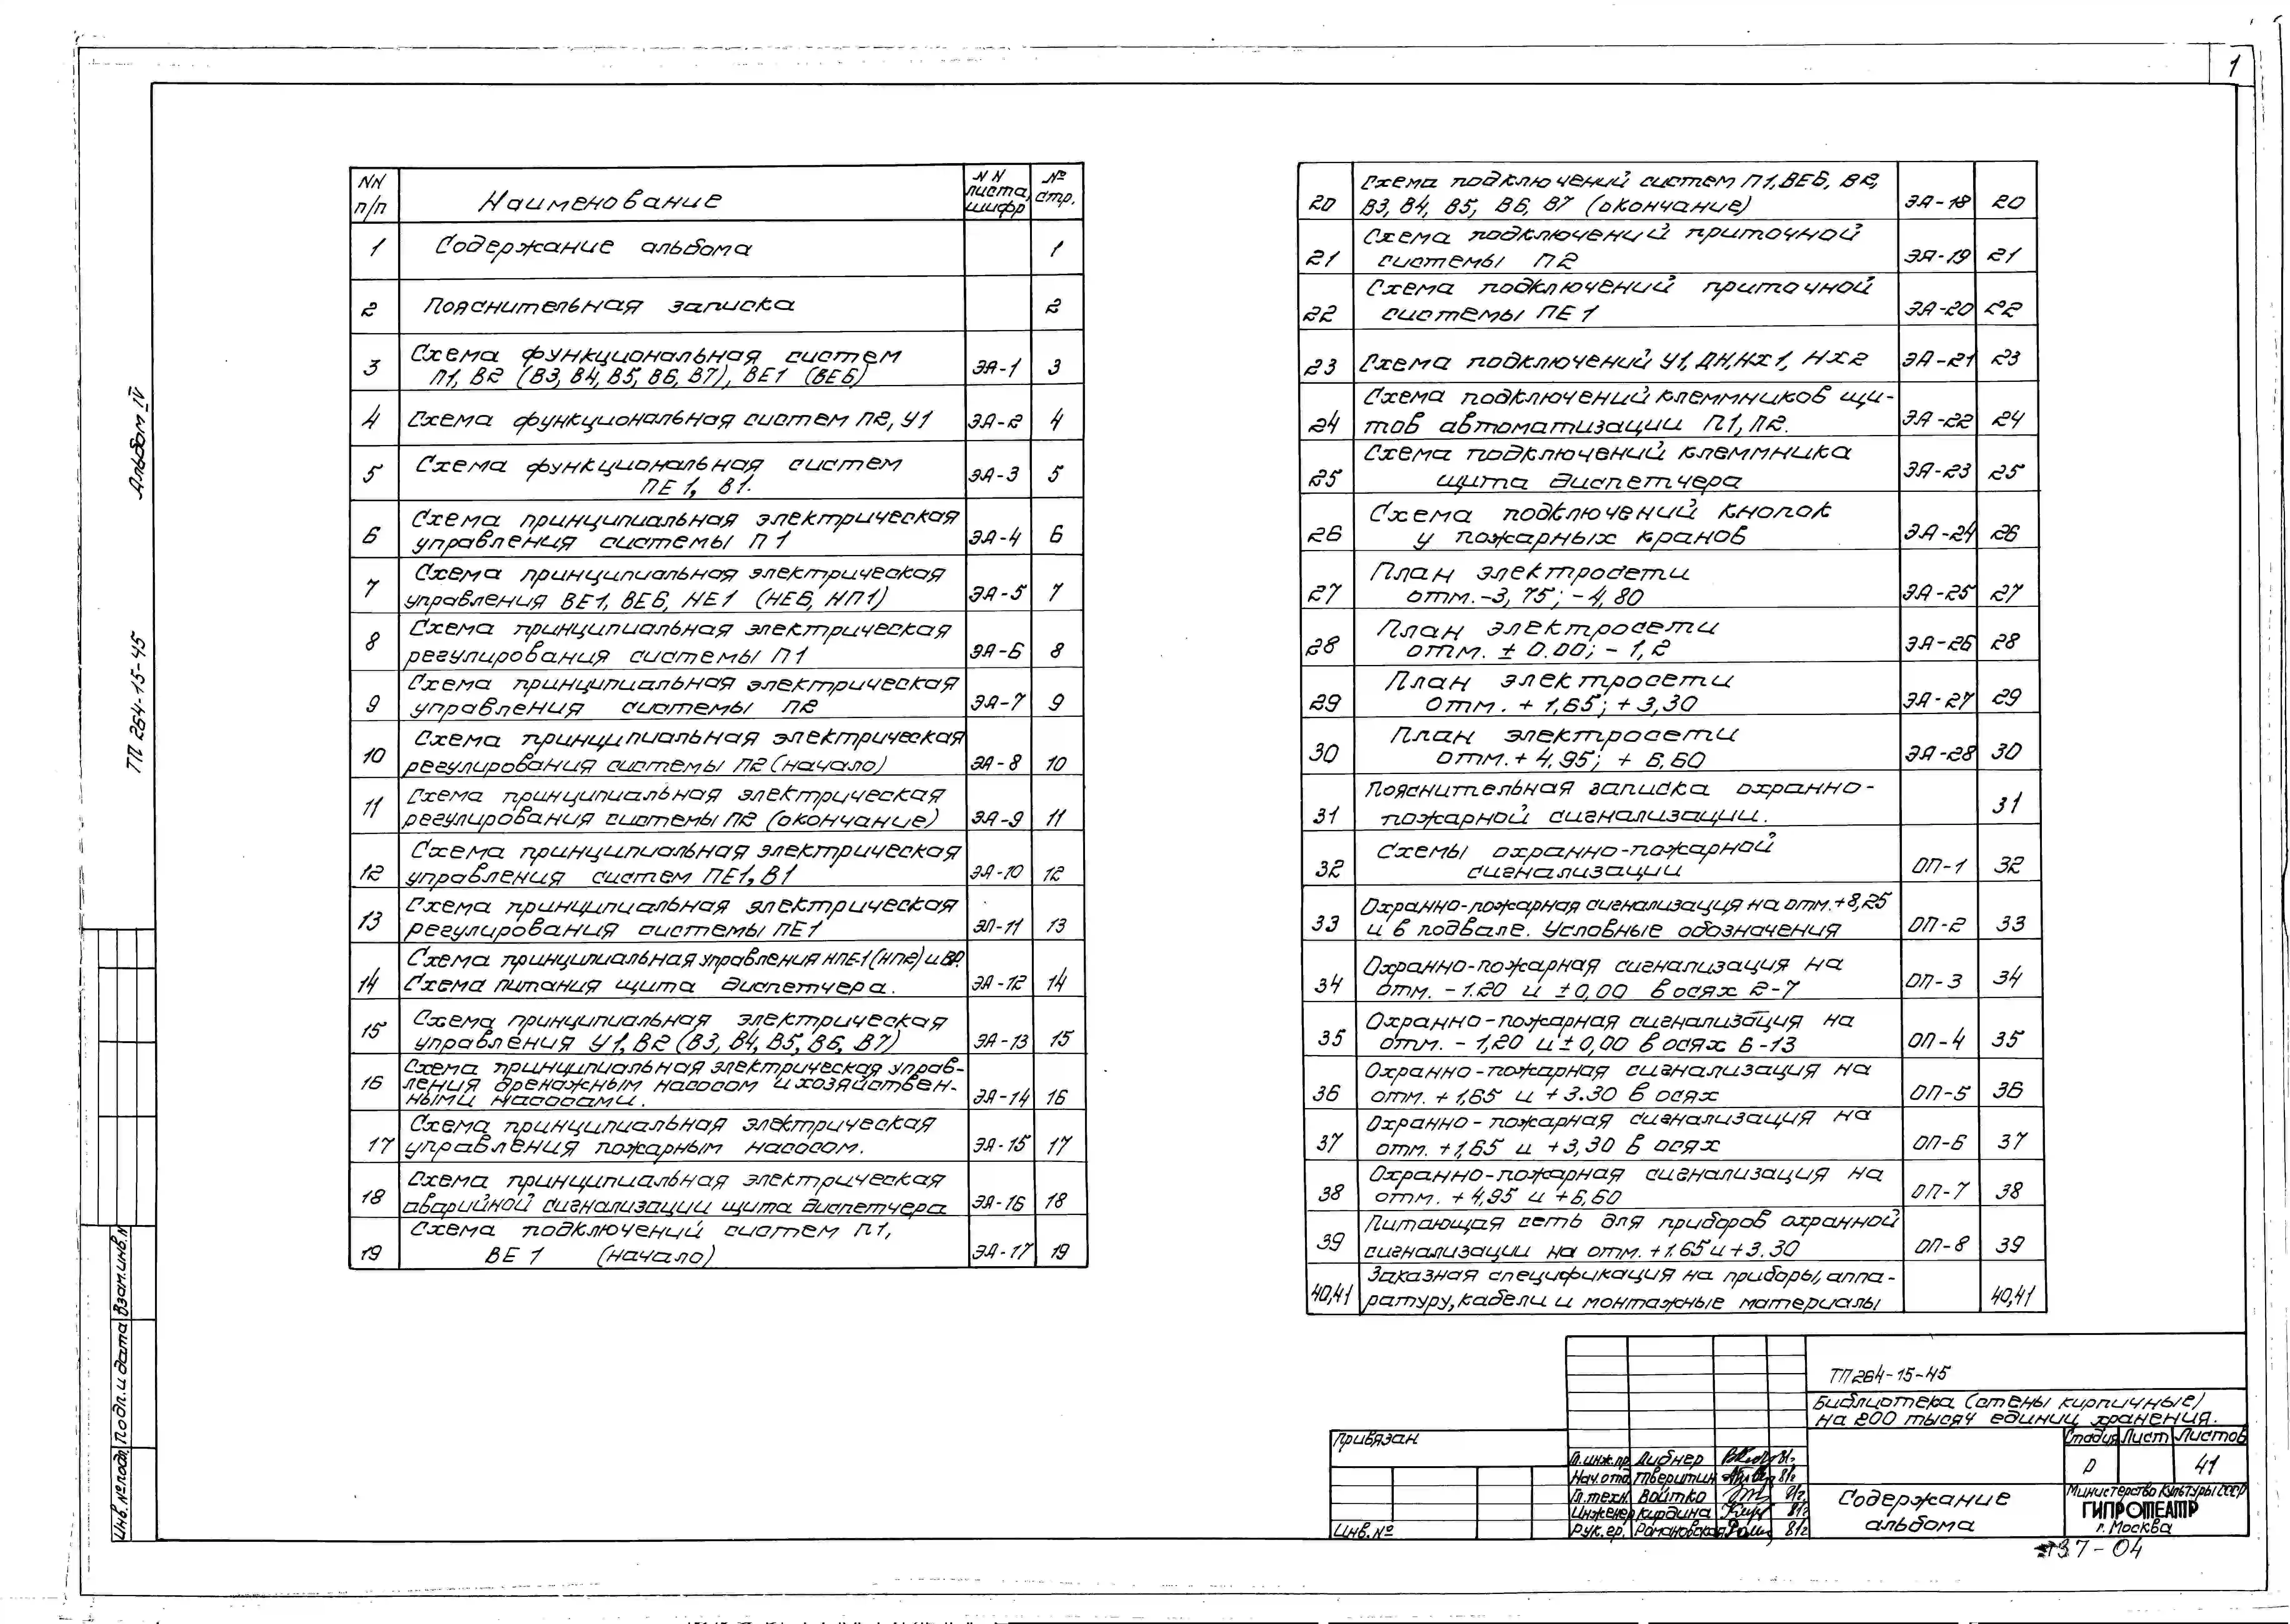 1
NN п/п Наименование NN листа, шифр № стр.
1 Содержание альбома 1
2 Пояснительная записка 2
3 Схема функциональная систем
П1, В2 (В3, В4, В5, В6, В7), ВЕ1 (ВЕ6) ЭА-1 3
4 Схема функциональная систем П2, У1 ЭА-2 4
5 Схема функциональная систем
ПЕ1, В1. ЭА-3 5
6 Схема принципиальная электрическая
управления системы П1 ЭА-4 6
7 Схема принципиальная электрическая
управления ВЕ1, ВЕ6, НЕ1 (НЕ6, НП1) ЭА-5 7
8 Схема принципиальная электрическая
регулирования системы П1 ЭА-6 8
9 Схема принципиальная электрическая
управления системы П2 ЭА-7 9
10 Схема принципиальная электрическая
регулирования системы П2 (начало) ЭА-8 10
11 Схема принципиальная электрическая
регулирования системы П2 (окончание) ЭА-9 11
12 Схема принципиальная электрическая
управления систем ПЕ1, В1 ЭА-10 12
13 Схема принципиальная электрическая
регулирования системы ПЕ1 ЭП-11 13
14 Схема принципиальная управления НПЕ-1 (НП2) и ВР.
Схема питания щита диспетчера. ЭА-12 14
15 Схема принципиальная электрическая
управления У1, В2 (В3, В4, В5, В6, В7) ЭА-13 15
16 Схема принципиальная электрическая управ-
ления дренажным насосом и хозяйствен-
ными насосами. ЭА-14 16
17 Схема принципиальная электрическая
управления пожарным насосом. ЭА-15 17
18 Схема принципиальная электрическая
аварийной сигнализации щита диспетчера ЭА-16 18
19 Схема подключений систем П1,
ВЕ1 (начало) ЭА-17 19
20 Схема подключений систем П1, ВЕ6, В2,
В3, В4, В5, В6, В7 (окончание) ЭА-18 20
21 Схема подключений приточной
системы П2 ЭА-19 21
22 Схема подключений приточной
системы ПЕ1 ЭА-20 22
23 Схема подключений У1, ДН, НХ1, НХ2 ЭА-21 23
24 Схема подключений клеммников щи-
тов автоматизации П1, П2. ЭА-22 24
25 Схема подключений клеммника
щита диспетчера ЭА-23 25
26 Схема подключений кнопок
у пожарных кранов ЭА-24 26
27 План электросети
отм. -3,75; -4,80 ЭА-25 27
28 План электросети
отм. ± 0.00; - 1,2 ЭА-26 28
29 План электросети
отм. + 1,65; + 3,30 ЭА-27 29
30 План электросети
отм. + 4,95; + 6,60 ЭА-28 30
31 Пояснительная записка охранно-
пожарной сигнализации. 31
32 Схемы охранно-пожарной
сигнализации ОП-1 32
33 Охранно-пожарная сигнализация на отм. +8,25
и в подвале. Условные обозначения ОП-2 33
34 Охранно-пожарная сигнализация на
отм. - 1.20 и ±0,00 в осях 2-7 ОП-3 34
35 Охранно-пожарная сигнализация на
отм. - 1,20 и ±0,00 в осях 6-13 ОП-4 35
36 Охранно-пожарная сигнализация на
отм. + 1,65 и + 3.30 в осях ОП-5 36
37 Охранно-пожарная сигнализация на
отм. +1,65 и +3,30 в осях ОП-6 37
38 Охранно-пожарная сигнализация на
отм. + 4,95 и +6,60 ОП-7 38
39 Питающая сеть для приборов охранной
сигнализации на отм. +1.65 и +3.30 ОП-8 39
40,41 Заказная спецификация на приборы, аппа-
ратуру, кабели и монтажные материалы 40,41
Альбом IV
ТП 264-15-45
Взам. инв. N
Подп. и дата
Инв. № подл.
Привязан
Инв. №
ТП 264-15-45
Библиотека (стены кирпичные)
на 200 тысяч единиц хранения.
Стадия Лист Листов
Р 41
Гл. инж. пр. Дибнер 81г
Нач. отд. Тверитин 81г
Гл. техн. Войтко 81г
Инженер Кирдина 81г
Рук. гр. Романовская 81г
Содержание
альбома
Министерство культуры СССР
ГИПРОТЕАТР
г. Москва
37-04